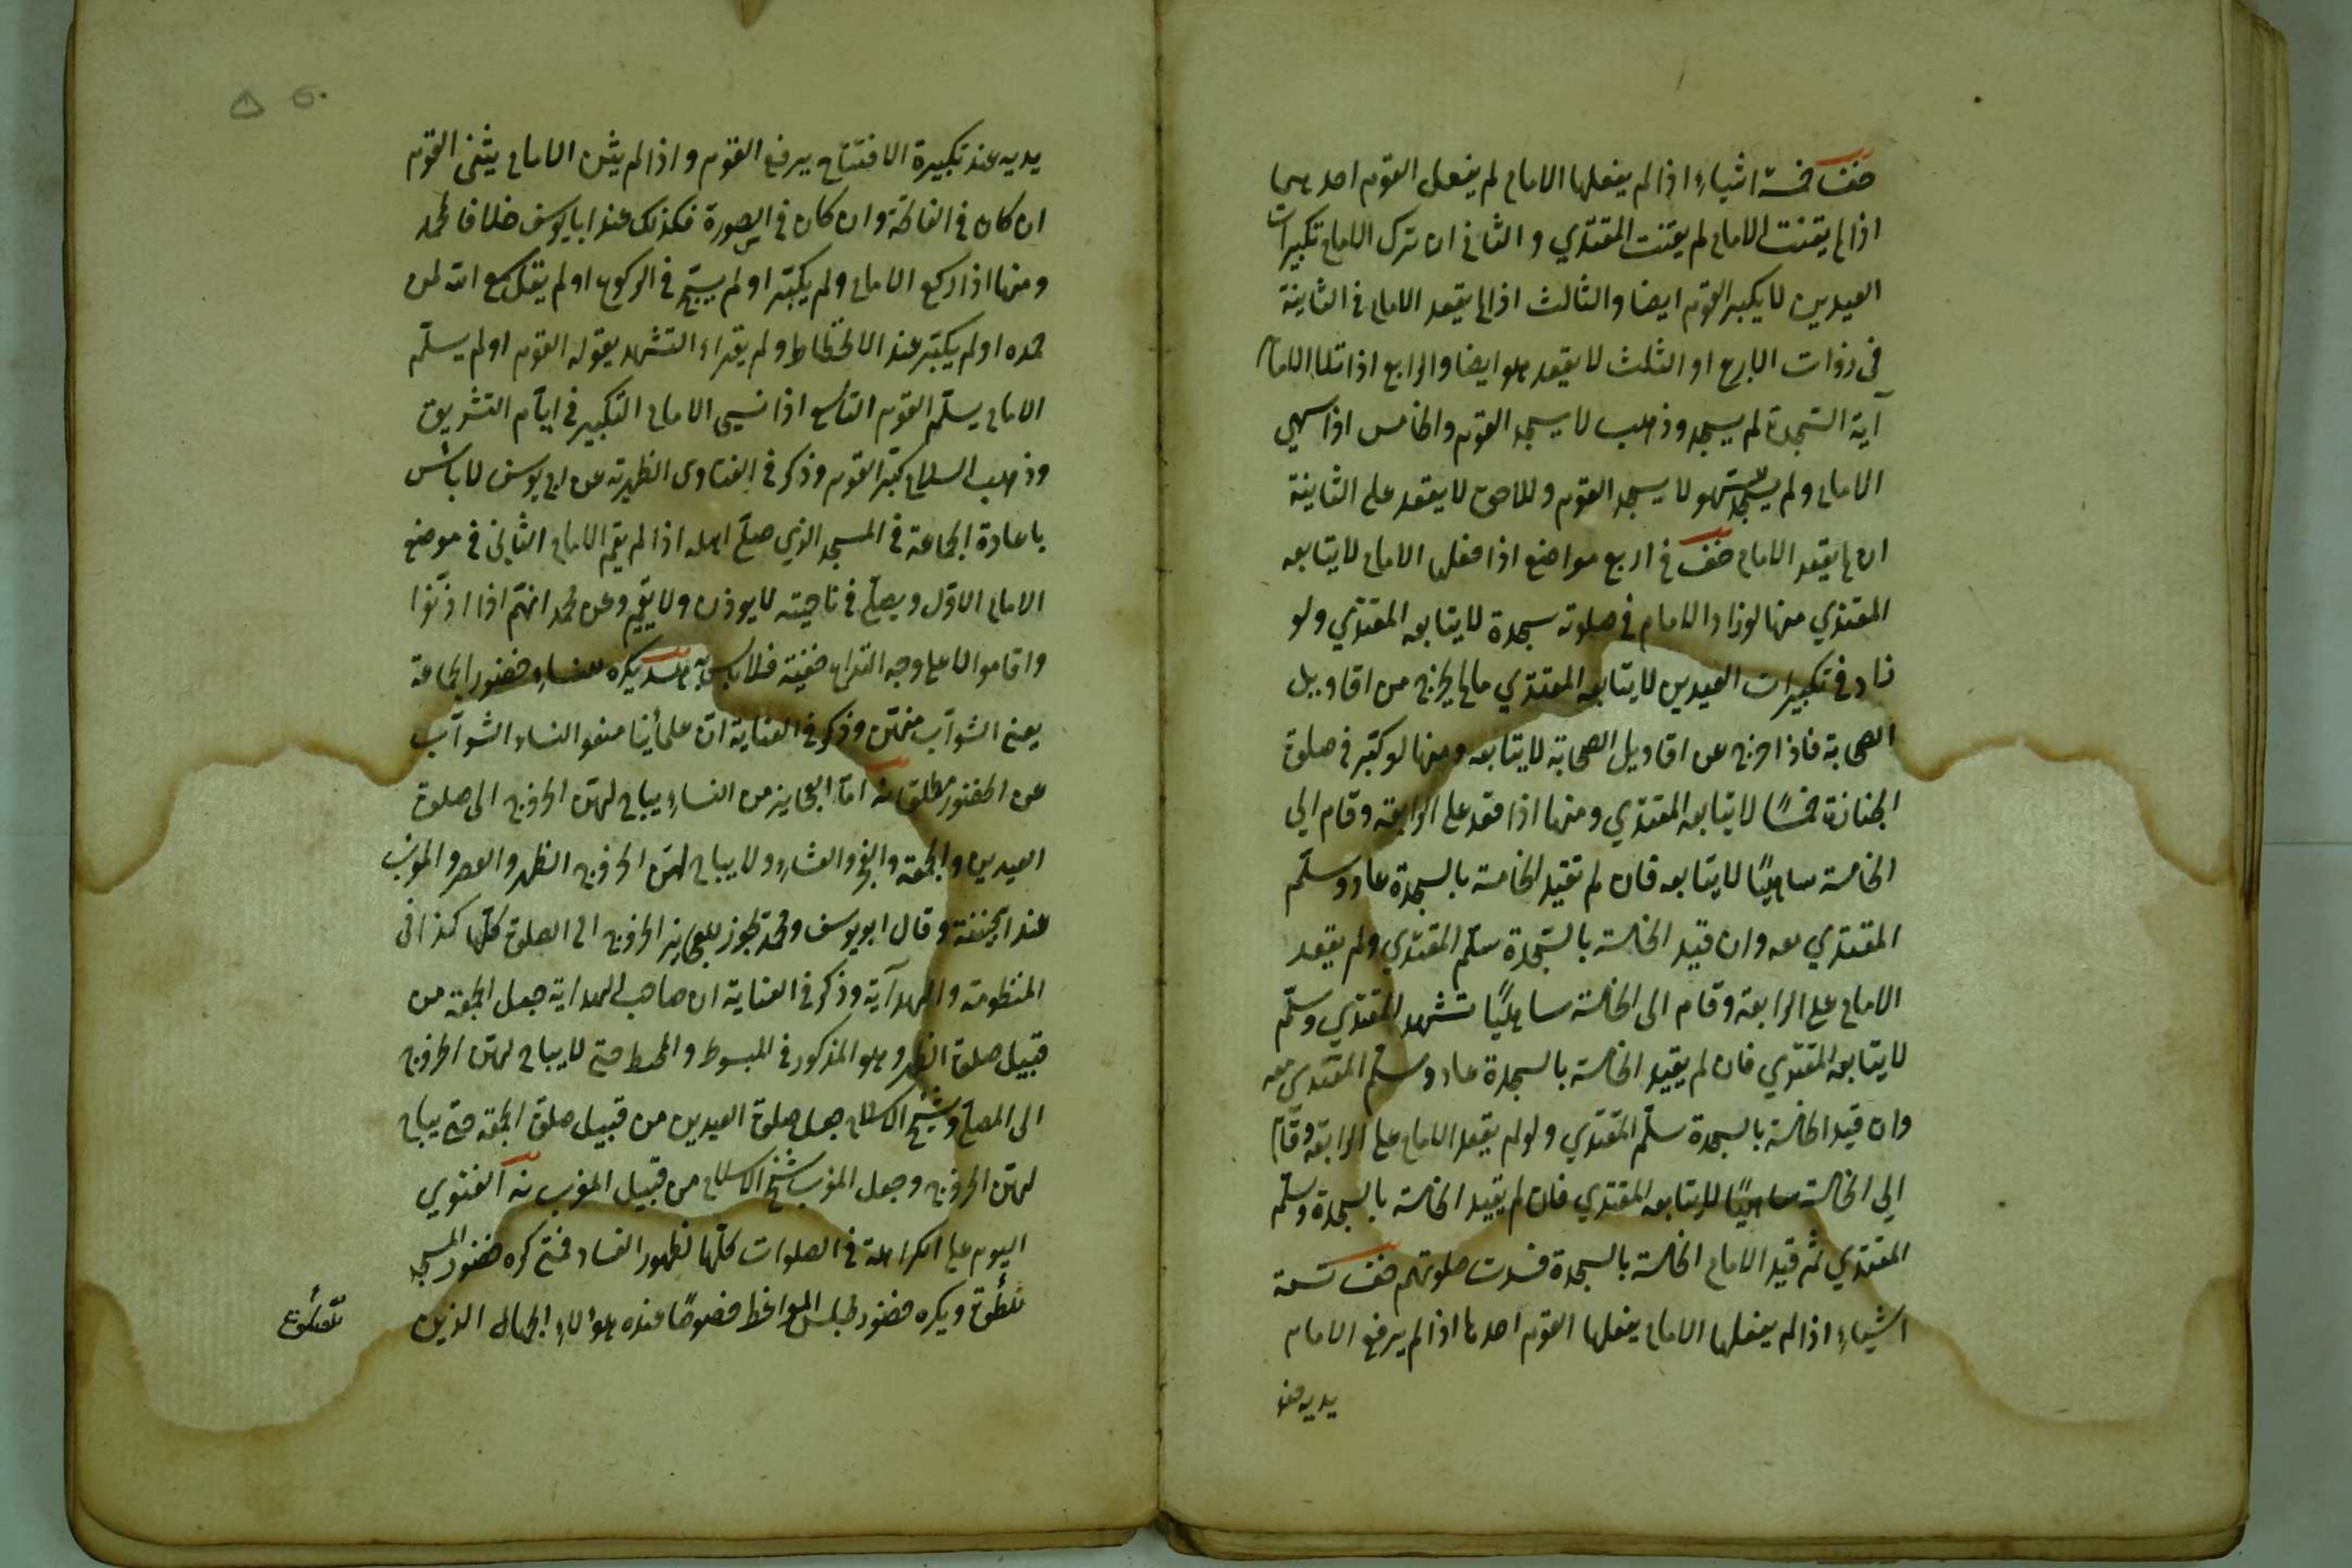 خف خمسة اشياء اذا لم يفعلها الامام لم يفعل القوم احديها
اذا لم يقنت الامام لم يقنت المقتدي و الثاني ان ترك الامام تكبيرات
العيدين لا يكبر القوم ايضا والثالث اذا لم يقعد الامام في الثانية
في ذوات الاربع او الثلث لا يقعد هو ايضا والرابع اذا تلا الامام
آية السّجدة لم يسجد وذهب لا يسجد القوم والخامس اذا سهي
الامام ولم يسجد للسهو لا يسجد القوم و لا يقعد على الثانية
ان لم يقعد الامام خف في اربع مواضع اذا فعلها الامام لا يتابعه
المقتدي منها لو زاد الامام في صلوته سجدة لا يتابعه المقتدي ولو
زاد في تكبيرات العيدين لا يتابعه المقتدي ما لم يخرج من اقاويل
الصحابة فاذا خرج عن اقاويل الصحابة لا يتابعه ومنها لو كبّر في صلوة
الجنازة خمسًا لا يتابعه المقتدي ومنها اذا قعد على الرابعة وقام الي
الخامسة ساهيًا لا يتابعه فان لم تقيد الخامسة بالسجدة عاد وسلّم
المقتدي معه وان قيد الخامسة بالسّجدة سلّم المقتدي ولم يقعد
الامام على الرابعة وقام الى الخامسة ساهيًا تشهد المقتدي وسلّم
لا يتابعه المقتدي فان لم يقيد الخامسة بالسجدة عاد وسلّم المقتدي معه
وان قيد الخامسة بالسجدة سلّم المقتدي ولو لم يقعد الامام على الرابعة وقام
الي الخامسة ساهيًا لا يتابعه المقتدي فان لم يقيد الخامسة بالسجدة وسلّم
المقتدي ثم قيد الامام الخامسة بالسجدة فسدت صلوتهم خف تسعة
اشياء اذا لم يفعلها الامام يفعلها القوم احدها اذا لم يرفع الامام
يديه عند
يديه عند تكبيرة الافتتاح يرفع القوم و اذا لم يثن الامام يثني القوم
ان كان في الفاتحة وان كان في السورة فكذلك عند ابا يوسف خلافا لمحمد
ومنها اذا ركع الامام ولم يكبّر او لم يسبّح في الركوع او لم يقل سمع الله لمن
حمده او لم يكبّر عند الانحطاط ولم يقراء التشهد يقوله القوم او لم يسلّم
الامام يسلّم القوم التاسع اذا نسي الامام التكبير في ايّام التشريق
وذهب السلام كبّر القوم وذكر في الفتاوى الظهيرية عن ابي يوسف لا بأس
باعادة الجماعة في المسجد الذي صلّى اهله اذا لم يقم الامام الثاني في موضع
الامام الاوّل ويصلّي في ناحيته لا يوذن ولا يقيم وعن محمد انهم اذا اذّنوا
واقاموا لا على وجه التداعي خفية فلا باس به يكره للنساء حضور الجماعة
يعني الشوآبّ منهنّ وذكر في العناية انّ علمأينا منعوا النساء الشوآبّ
عن الحضور مطلقا امّا العجايز من النساء يباح لهنّ الخروج الى صلوة
العيدين والجمعة والفجر والعشاء ولا يباح لهنّ الخروج الظهر والعصر والمغرب
عند ابيحنيفة وقال ابو يوسف ومحمد يجوز للعجايز الخروج الى الصلوة كلّها كذا في
المنظومة والهدآية وذكر في العناية ان صاحب الهداية جعل الجمعة من
قبيل صلوة الظهر وهو المذكور في المبسوط والمحيط حتى لا يباح لهنّ الخروج
الى المصلّى وشيخ الاسلام جعل صلوة العيدين من قبيل صلوة الجمعة حتى يباح
لهنّ الخروج وجعل المغرب شيخ الاسلام من قبيل المغرب آلفتوي
اليوم على الكراهة في الصلوات كلّها لظهور الفساد فمتى كره حضور المسجد
للصلوة ويكره حضور مجلس المواعظ خصوصًا عنده هؤلاء الجهال الذين